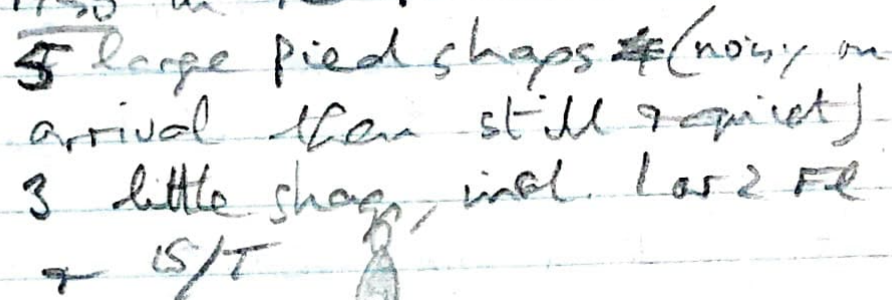 5 large pied shags (noisy on
arrival then still & quiet)
3 little shags, incl. 1 or 2 Fl
& 1S/T